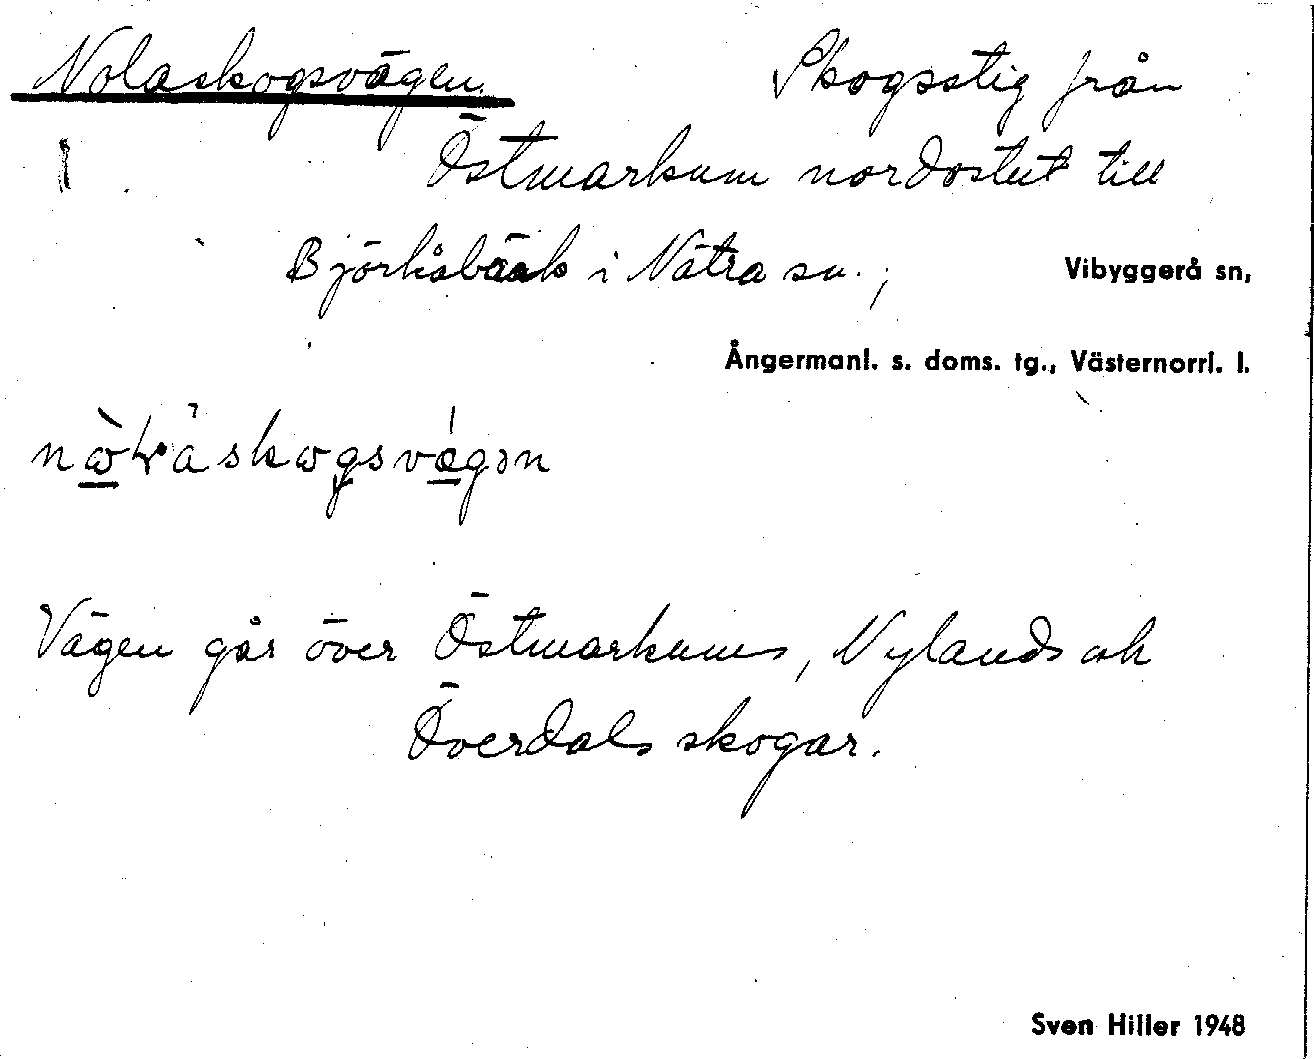 Nolaskogsvägen. Skogsstig från
Östmarkum nordostut till
Björkåbäck i Nätra sn.,
Vibyggerå sn,
Ångermanl. s. doms. tg., Västernorrl. l.
Vägen går över Östmarkums, Nylands och
Överdals skogar.
Sven Hiller 1948